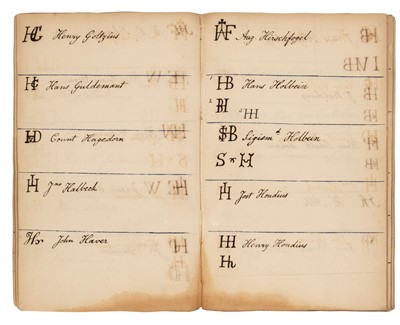 HG Henry Goltzius
HG Hans Guldemant
HD Count Hagedorn
IH Jno Halbech
Hr John Haver
AF Aug Hirschfogel
HB Hans Holbein
BH HH
SHB Sigism.d Holbein
S * H
IH Jost Hondius
HH Henry Hondius
Hh